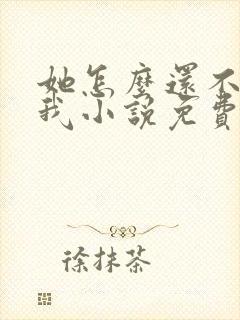 她怎麼還不
我小說免費
徐抹茶